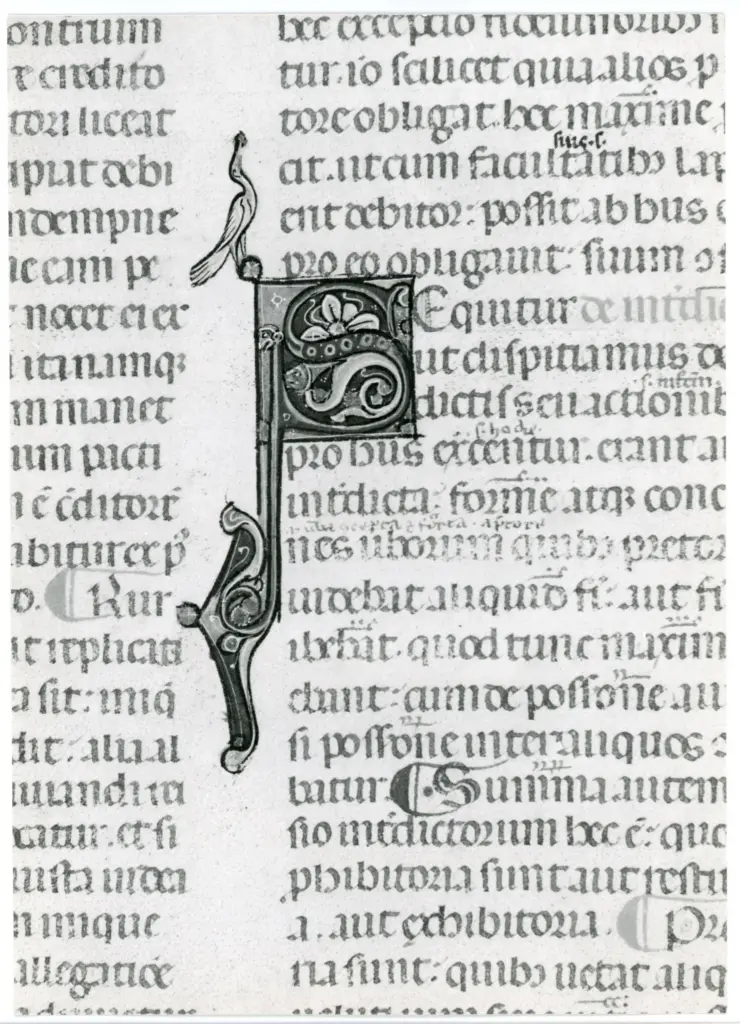 ontrium
r credito
tori liceat
upiat debi
indempne
iecam pe
nocet ei er
ita namqꝫ
m manet
um pacti
i ē c̄ditorē
abitur ex p̄
o. Rur
it replicati
a sit: iniq̄
dit: alia al
iuuandi rei
ocatur. et si
iusta uidea
n inique
allegatiōe
hec exceptio fideiussoribꝫ
tur. iō scilicet quia alios p
tore obligat. hoc maxime
siue .s.
cit. ut cum facultatibꝫ lap
ent debitor: possit ab hiis e
pro eo obligauit: suum ɔs
Equitur de int̄dic
ut dispiciamus de
.s. int̄cm̄.
dictis seu actionib
.s. hodie
pro hiis exc̄entur. erant a
int̄dicta: forme atqꝫ conc
nes uborum quibꝫ pretor
iubebat aliquid fi̅. aut fi
ꝓhibebat. quod tunc maxim
ebant: cum de possōne au
si possōne inter aliquos
batur. Summa autem
sio int̄dictorum hec ē: quo
ꝓhibitoria sunt aut restit
a. aut exhibitoria. Pro
ria sunt: quibꝫ uetat aliq